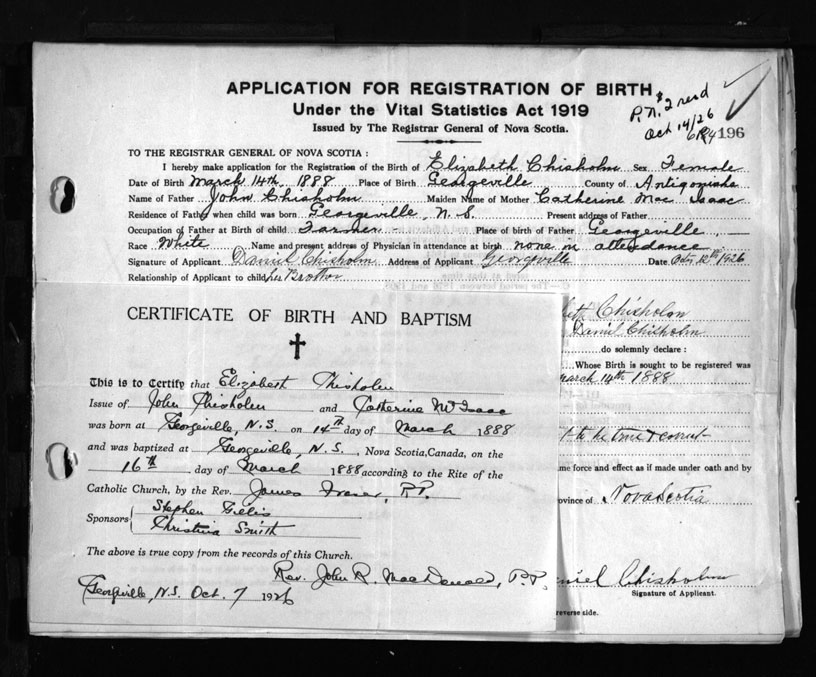 APPLICATION FOR REGISTRATION OF BIRTH
Under the Vital Statistics Act 1919
Issued by The Registrar General of Nova Scotia.
P.N. $2 recd
Oct 14/26
196
TO THE REGISTRAR GENERAL OF NOVA SCOTIA :
I hereby make application for the Registration of the Birth of Elizabeth Chisholm Sex Female
Date of Birth March 14th, 1888 Place of Birth Georgeville County of Antigonish
Name of Father John Chisholm Maiden Name of Mother Catherine Mac Isaac
Residence of Father when child was born Georgeville, N. S. Present address of Father
Occupation of Father at Birth of child Farmer - Place of birth of Father Georgeville, —
Race White Name and present address of Physician in attendance at birth none in attendance
Signature of Applicant Daniel Chisholm Address of Applicant Georgeville Date Oct 12th 1926
Relationship of Applicant to child her Brother
CERTIFICATE OF BIRTH AND BAPTISM
This is to Certify that Elizabeth Chisholm
Issue of John Chisholm and Catherine McIsaac
was born at Georgeville, N.S. on 14th day of March 1888
and was baptized at Georgeville, N.S., Nova Scotia, Canada, on the
16th day of March 1888 according to the Rite of the
Catholic Church, by the Rev. James Fraser, P.P.
Sponsors { Stephen Gillis
Christina Smith
The above is true copy from the records of this Church.
Rev. John R. MacDonald, P.P.
Georgeville, N.S. Oct. 7 1926
Chisholm
Daniel Chisholm
do solemnly declare :
Whose Birth is sought to be registered was
March 14th 1888
to be true & correct
me force and effect as if made under oath and by
ovince of Nova Scotia
niel Chisholm
Signature of Applicant.
reverse side.